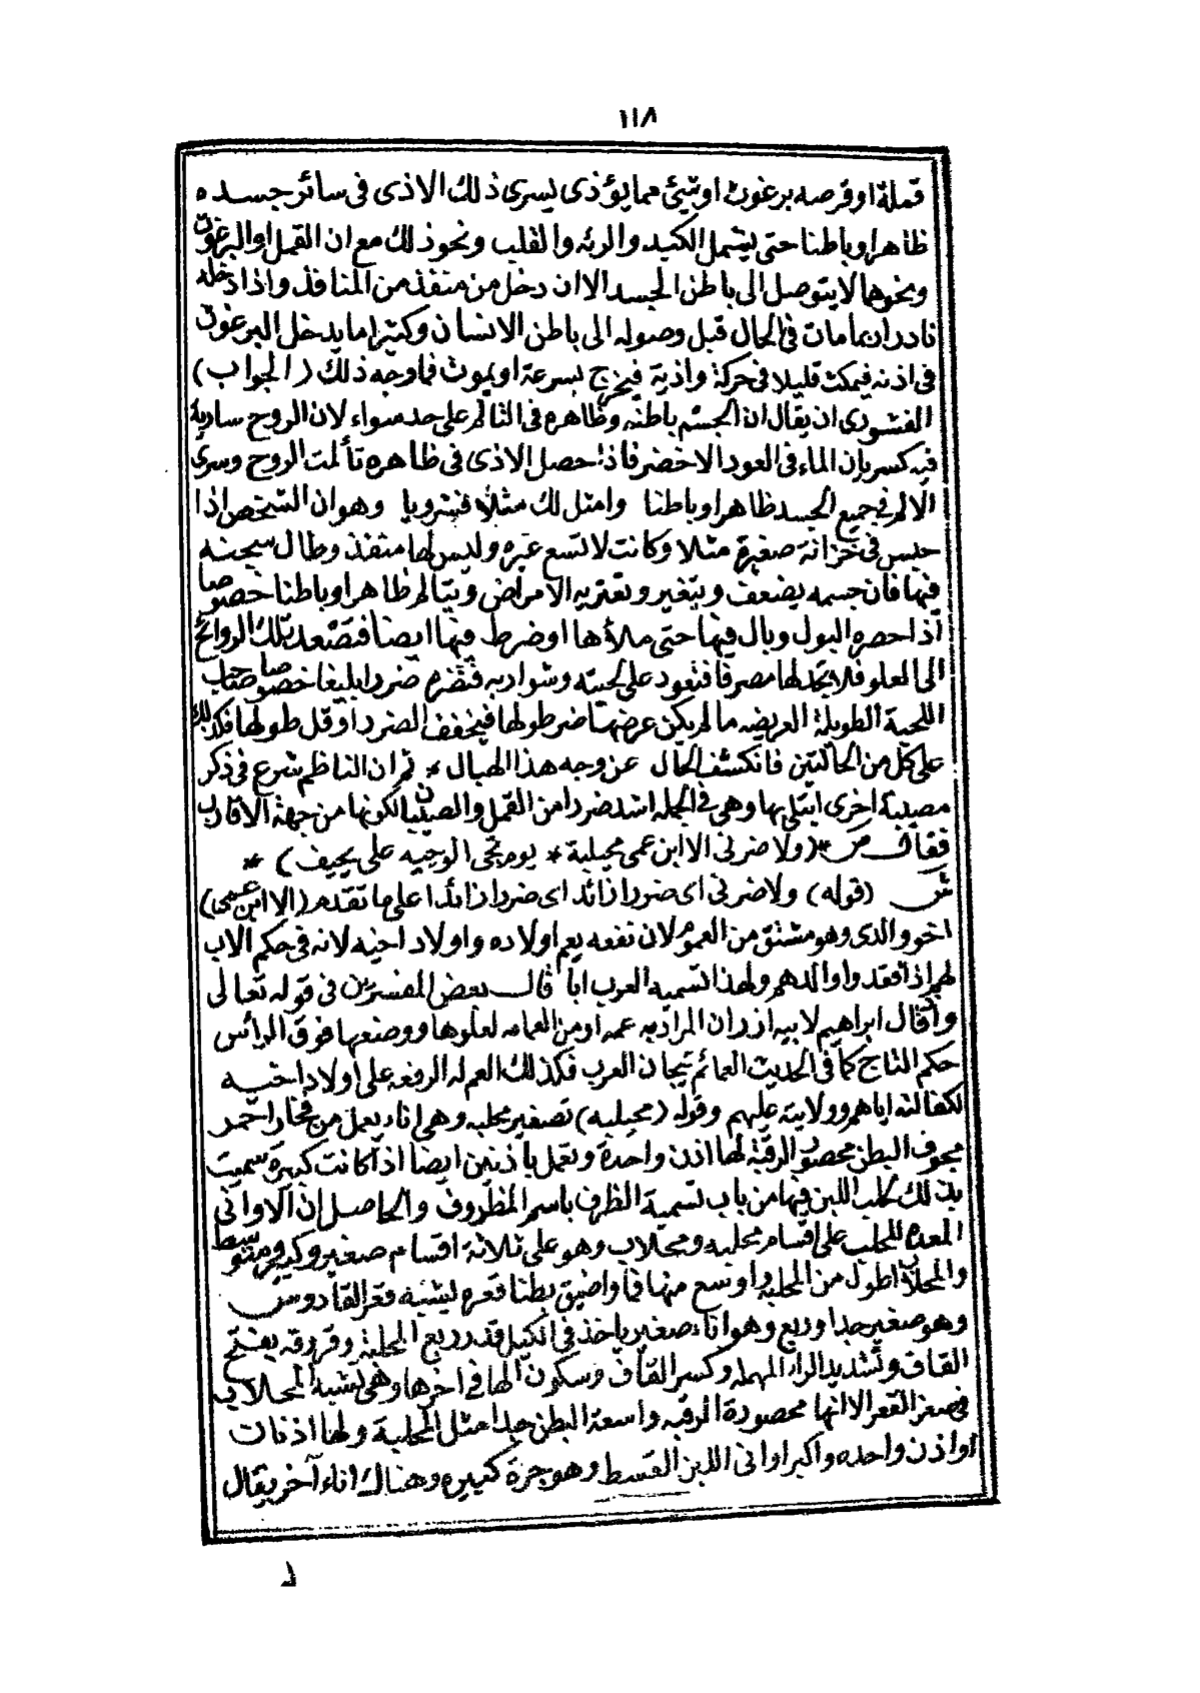 ١١٨
قملة او قرصه برغوث او شئ مما يؤذى يسرى ذلك الاذى فى سائر جسده
ظاهرا وباطنا حتى يشمل الكبد والرئه والقلب ونحو ذلك مع ان القمل او البرغوث
ونحوها لا يتوصل الى باطن الجسد الا ان دخل من منفذ من المنافذ واذا دخله
نادرا ربما مات فى الحال قبل وصوله الى باطن الانسان وكثيرا ما يدخل البرغوث
فى اذنه فيمكث قليلا فى حركة واذية فيخرج بسرعة او يموت فما وجه ذلك (الجواب)
الفشورى ان يقال ان الجسم باطنه وظاهره فى التالم على حد سواء لان الروح سارية
فيه كسريان الماء فى العود الاخضر فاذا حصل الاذى فى ظاهره تألمت الروح وسرى
الالم فى جميع الجسد ظاهرا وباطنا وامثل لك مثالا فشرويا وهو ان الشخص اذا
حبس فى خزانة صغيرة مثلا وكانت لا تسع غيره وليس لها منفذ وطال سجنه
فيها فان جسمه يضعف ويتغير وتعتريه الامراض ويتالم ظاهرا وباطنا خصوصا
اذا حصره البول وبال فيها حتى ملأها او ضرط فيها ايضا فتصعد تلك الروائح
الى العلو فلا تجد لها مصرفا فتعود على لحيته وشواربه فتضره ضررا بليغا خصوصا صاحب
اللحية الطويلة العريضه ما لم يكن عرضها ضر طولها فيخفف الضرر او قل طولها فكذلك
على كل من الحالتين فانكشف الحال عن وجه هذا الهبال * ثم ان الناظم شرع فى ذكر
مصيبة اخرى ابتلى بها وهى فى الجمله اشد ضررا من القمل والصيبان لكونها من جهة الاقارب
فقال ص * (ولا ضرنى الا ابن عمى محيلبة * يوم تجى الوجبه على يحيف) *
ش (قوله) ولا ضرنى اى ضررا زائدا اى ضررا زائدا على ما تقدم (الا ابن عمى)
اخو والدى وهو مشتق من العموم لان نفعه يعم اولاده واولاد اخيه لانه فى حكم الاب
لهم اذا فقدوا والدهم ولهذا تسميه العرب ابا قال بعض المفسرين فى قوله تعالى
واذ قال ابراهيم لابيه ازر ان المراد به عمه او من العمامه لعلوها ووضعها فوق الرأس
حكم التاج كما فى الحديث العمائم تيجان العرب فكذلك العم له الرفعه على اولاد اخيه
لكفالته اياهم وولايته عليهم وقوله (محيلبه) تصغير محلبه وهى اناء يعمل من فخار احمر
مجوف البطن محصور الرقبة لها اذن واحدة وتعمل باذنين ايضا اذا كانت كبيرة سميت
بذلك لحلب اللبن فيها من باب تسمية الظرف باسم المظروف والحاصل ان الاوانى
المعده للحلب على اقسام محلبه ومحلاب وهو على ثلاثة اقسام صغير وكبير ومتوسط
والمحلاب اطول من المحلبة واوسع منها فما واضيق بطنا قعره يشبه قعر القادوس
وهو صغير جدا وربع وهو اناء صغير ياخذ فى الكيل قدر ربع المحلبة وقروقه بفتح
القاف وتشديد الراء المهمله وكسر القاف وسكون الها فى اخرها وهى تشبه المحلاب
فى صغر القعر الا انها محصورة الرقبه واسعة البطن جدا مثل المحلبة ولها اذنان
او اذن واحده واكبر اوانى اللبن القسط وهو جرة كبيره وهناك اناء آخر يقال